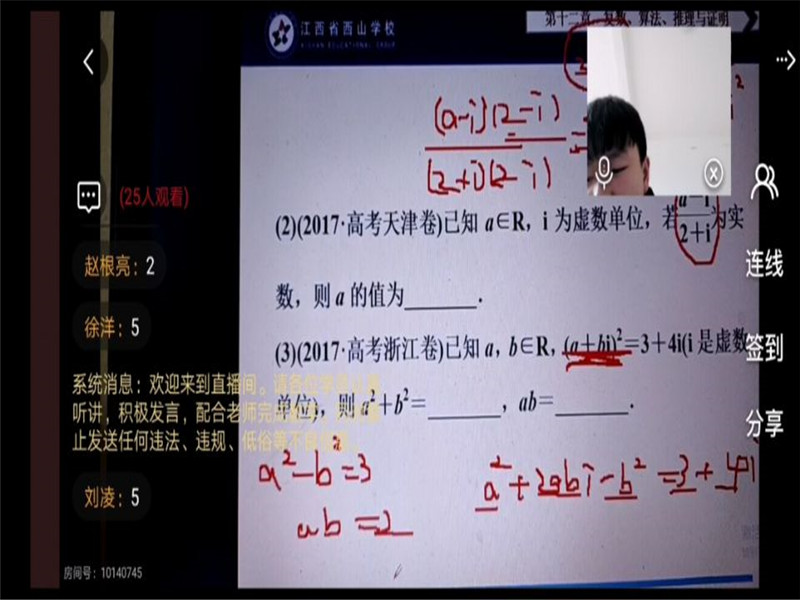 江西省西山学校
XISHAN EDUCATIONAL GROUP
第十二章 复数、算法、推理与证明
(a-i)(2-i)
(2+i)(2-i)
=
(25人观看)
(2)(2017·高考天津卷)已知 a∈R，i 为虚数单位，若 a-i/2+i 为实
数，则 a 的值为______．
(3)(2017·高考浙江卷)已知 a，b∈R，(a+bi)²=3+4i(i 是虚数
单位)，则 a²+b²=______，ab=______．
a²-b²=3
ab=2
a²+2abi-b²=3+4i
赵根亮：2
徐洋：5
系统消息：欢迎来到直播间。
听讲，积极发言，配合老师完
止发送任何违法、违规、低俗等不
刘凌：5
房间号：10140745
连线
签到
分享